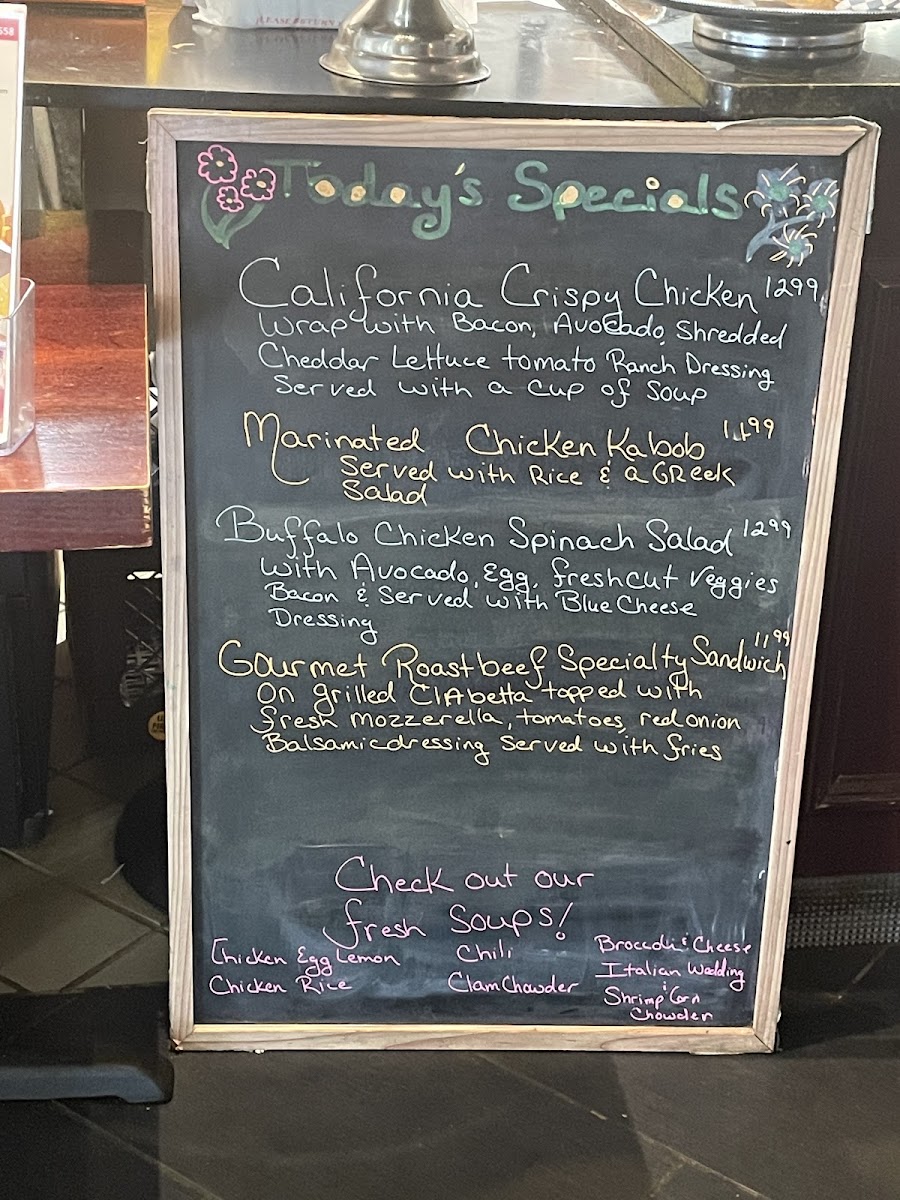 LEASE RETURN
558
Today's Specials
California Crispy Chicken 1299
Wrap with Bacon, Avocado, Shredded
Cheddar Lettuce tomato Ranch Dressing
Served with a cup of soup
Marinated Chicken Kabob
Served with Rice & a GReek
Salad
Buffalo Chicken Spinach Salad 1299
with Avocado, Egg, freshcut Veggies
Bacon & Served with Blue Cheese
Dressing
Gourmet Roastbeef Specialty Sandwich 1199
On grilled CIAbetta topped with
fresh mozzerella, tomatoes, red onion
Balsamic dressing Served with fries
Check out our
fresh Soups!
Chicken Egg Lemon Chili Broccoli & Cheese
Chicken Rice Clam Chowder Italian Wedding
Shrimp & Corn
Chowder